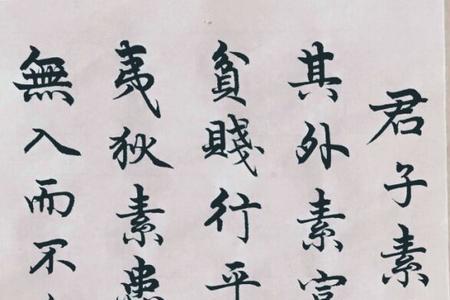 君子素
其外素富
貧賤行乎
夷狄素患
無入而不